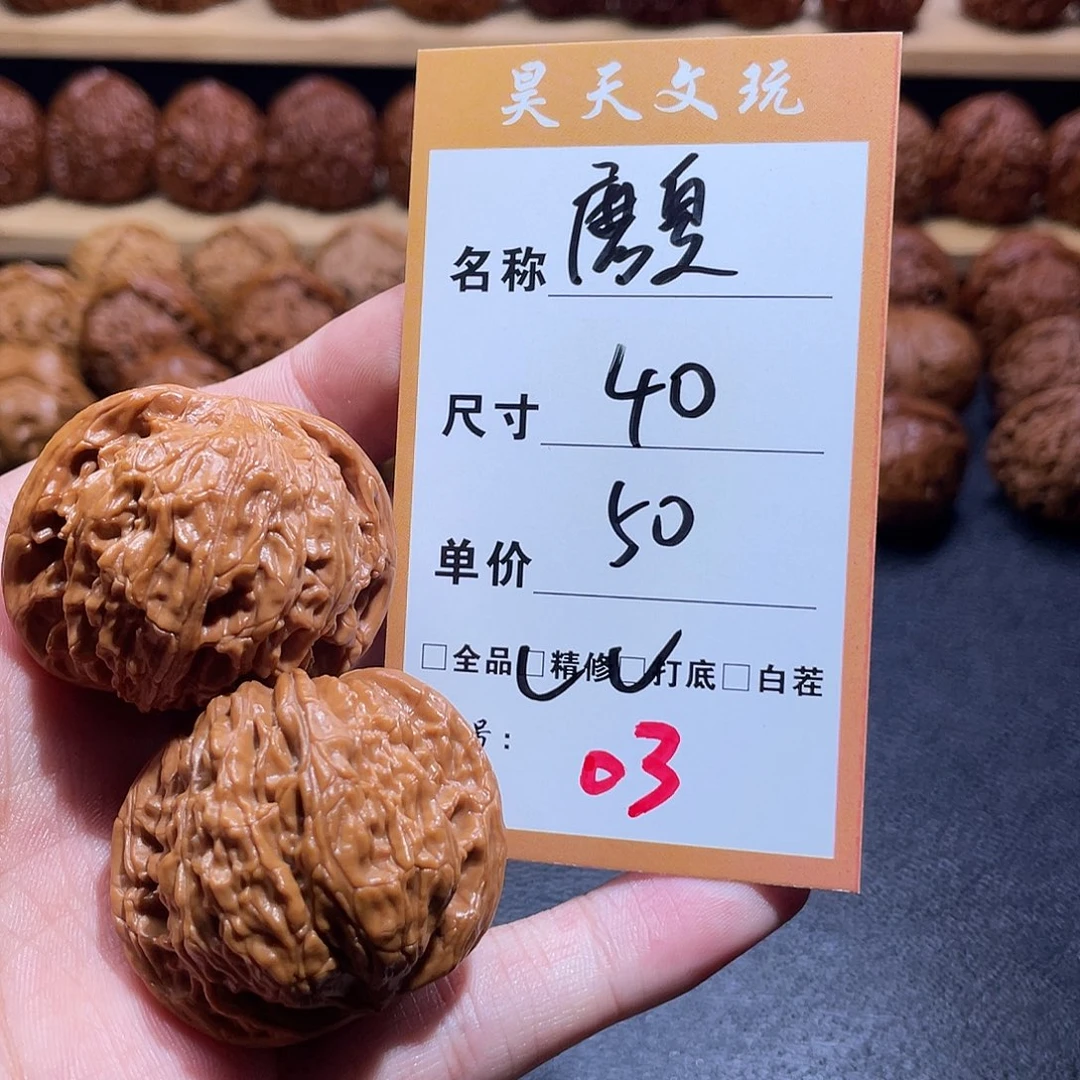 昊天文玩
名称 磨臭
尺寸 40
单价 50
□全品□精修□打底□白茬
号：03